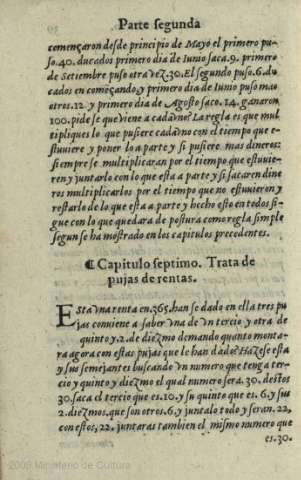 Parte segunda
començaron desde principio de Mayo el primero pu-
so.40. ducados primero dia de Iunio saca.9. primero
de Setiembre puso otra vez.30. El segundo puso.6.du
cados en començando y primero dia de Iunio puso mas
otros.12. y primero dia de Agosto saco.14. ganaron
100. pide se que viene a cadavno? La regla es que mul
tipliques lo que pusiere cadavno con el tiempo que e-
stuuiere y poner lo a parte y si pusiere mas dineros:
siempre se multiplicaran por el tiempo que estuuie-
ren y juntarlo con lo que esta a parte y si sacaren dine
ros multiplicarlos por el tiempo que no estuuieron y
restarlo de lo que esta a parte y hecho esto en todos si-
gue con lo que quedara de postura como regla simple
segun se ha mostrado en los capitulos precedentes.
¶ Capitulo septimo. Trata de
pujas de rentas.
Esta vna renta en.365. han se dado en ella tres pu
jas conuiene a saber vna de vn tercio y otra de
quinto y.2. de diezmo demando quanto monta-
ra agora con estas pujas que le han dado? Haze se esta
y sus semejantes buscando vn numero que tenga ter-
cio y quinto y diezmo el qual numero sera.30. destos
30. saca el tercio que es.10. y su quinto que es.6. y sus
2. diezmos. que son otros.6. y juntalo todo y seran.22,
con estos,22. juntaras tambien el mismo numero que
es.30.
2009 Ministerio de Cultura